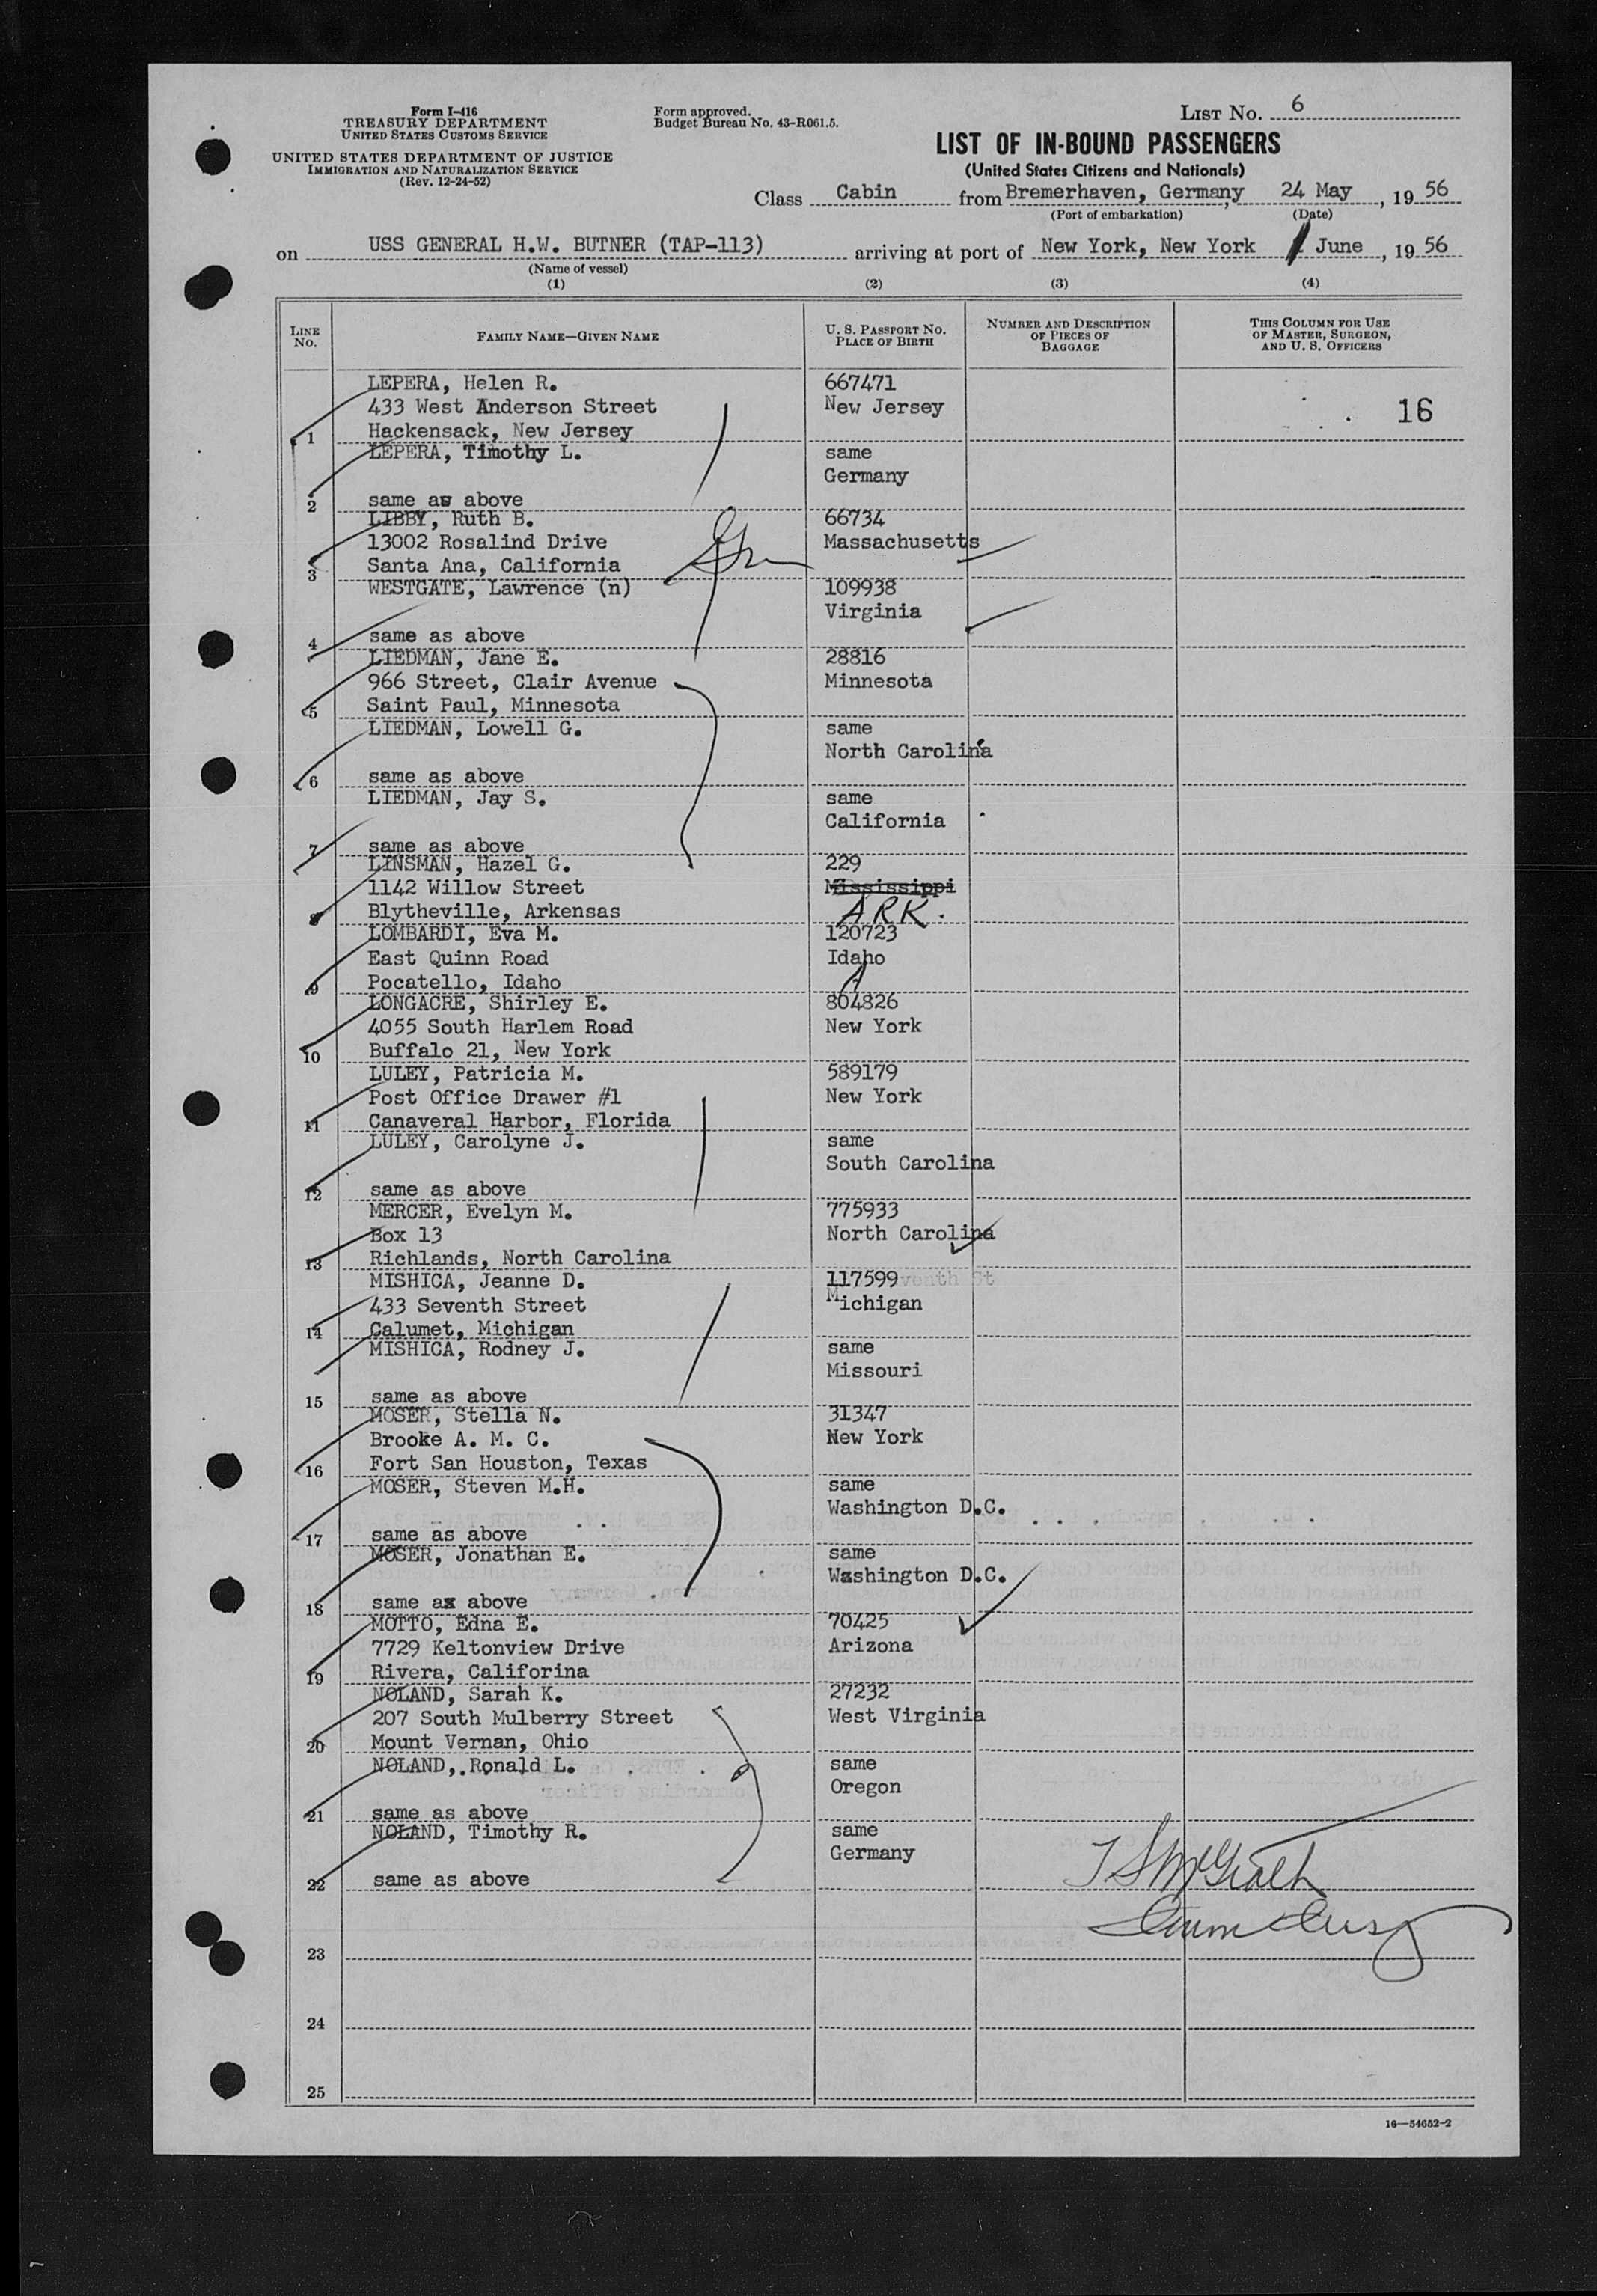 Form I-416
TREASURY DEPARTMENT
UNITED STATES CUSTOMS SERVICE
UNITED STATES DEPARTMENT OF JUSTICE
IMMIGRATION AND NATURALIZATION SERVICE
(Rev. 12-24-52)
Form approved.
Budget Bureau No. 43-R061.5.
LIST NO. 6
LIST OF IN-BOUND PASSENGERS
(United States Citizens and Nationals)
Class Cabin from Bremerhaven, Germany, 24 May, 1956
(Port of embarkation) (Date)
on USS GENERAL H.W. BUTNER (TAP-113) arriving at port of New York, New York 1 June, 1956
(Name of vessel)
(1) (2) (3) (4)
LINE NO.
FAMILY NAME—GIVEN NAME
U. S. PASSPORT NO.
PLACE OF BIRTH
NUMBER AND DESCRIPTION
OF PIECES OF
BAGGAGE
THIS COLUMN FOR USE
OF MASTER, SURGEON,
AND U. S. OFFICERS
LEPERA, Helen R. 667471
433 West Anderson Street New Jersey 16
1 Hackensack, New Jersey
LEPERA, Timothy L. same
Germany
2 same as above
LIBBY, Ruth B. 66734
13002 Rosalind Drive Massachusetts
3 Santa Ana, California
WESTGATE, Lawrence (n) 109938
Virginia
4 same as above
LIEDMAN, Jane E. 28816
966 Street, Clair Avenue Minnesota
5 Saint Paul, Minnesota
LIEDMAN, Lowell G. same
North Carolina
6 same as above
LIEDMAN, Jay S. same
California
7 same as above
LINSMAN, Hazel G. 229
1142 Willow Street Mississippi
8 Blytheville, Arkensas ARK.
LOMBARDI, Eva M. 120723
East Quinn Road Idaho
9 Pocatello, Idaho A
LONGACRE, Shirley E. 804826
4055 South Harlem Road New York
10 Buffalo 21, New York
LULEY, Patricia M. 589179
Post Office Drawer #1 New York
11 Canaveral Harbor, Florida
LULEY, Carolyne J. same
South Carolina
12 same as above
MERCER, Evelyn M. 775933
Box 13 North Carolina
13 Richlands, North Carolina
MISHICA, Jeanne D. 117599
433 Seventh Street Michigan
14 Calumet, Michigan
MISHICA, Rodney J. same
Missouri
15 same as above
MOSER, Stella N. 31347
Brooke A. M. C. New York
16 Fort San Houston, Texas
MOSER, Steven M.H. same
Washington D.C.
17 same as above
MOSER, Jonathan E. same
Washington D.C.
18 same as above
MOTTO, Edna E. 70425
7729 Keltonview Drive Arizona
19 Rivera, Califorina
NOLAND, Sarah K. 27232
207 South Mulberry Street West Virginia
20 Mount Vernan, Ohio
NOLAND, Ronald L. same
Oregon
21 same as above
NOLAND, Timothy R. same
Germany
22 same as above
T S McGrath
23
24
25
16—54652-2